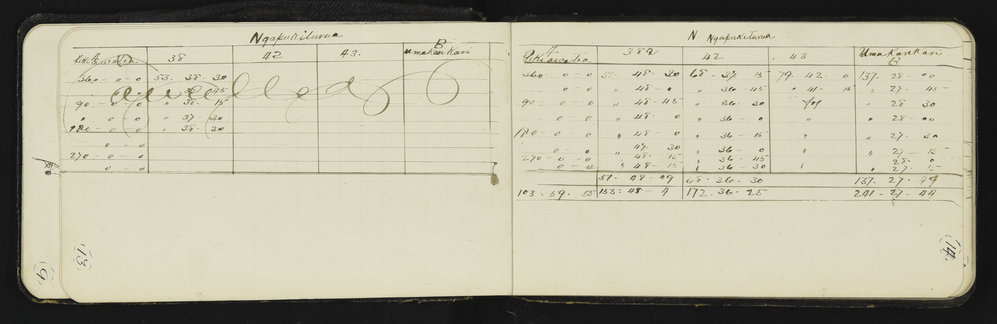 Ngapukiturua
38 42 43. B
Umakarikari
360 - 0 - 0 53. 38. 30
0 - 0
90 - 0 - 0 " 38. 15
" 0 - 0 " 37 - 30
180 - 0 - 0 " 38 - 30
0 - 0
270 - 0 - 0
0 - 0
13.
9.
N Ngapukiturua
42. 43 Umakarikari
B
360 - 0 - 0 51. 48. 30 68. 37. 15 79. 42. 0 137. 28 - 00
0 - 0 48 - 0 " 36 - 45 " 41 - 15 " 27 - 45
90 - 0 - 0 " 48 - 45 " 36 - 30 " 28 30
0 - 0 " 48 - 0 " 36 - 0 " " 28 - 00
180 - 0 - 0 " 48 - 0 " 36 - 15 " " 27 . 30
0 - 0 " 47. 30 " 36 - 0 " " 27 - 15
270 - 0 - 0 " 48 - 15 " 36 - 45 " 28 - 0
0 - 0 " 48 - 15 " 36 - 30 " " 27 - 15
51. 48 - 09 68. 36 - 30 137. 27 - 49
103 - 59. 55 155. 48 - 4 172. 36 - 25 241 - 27 - 44
14.